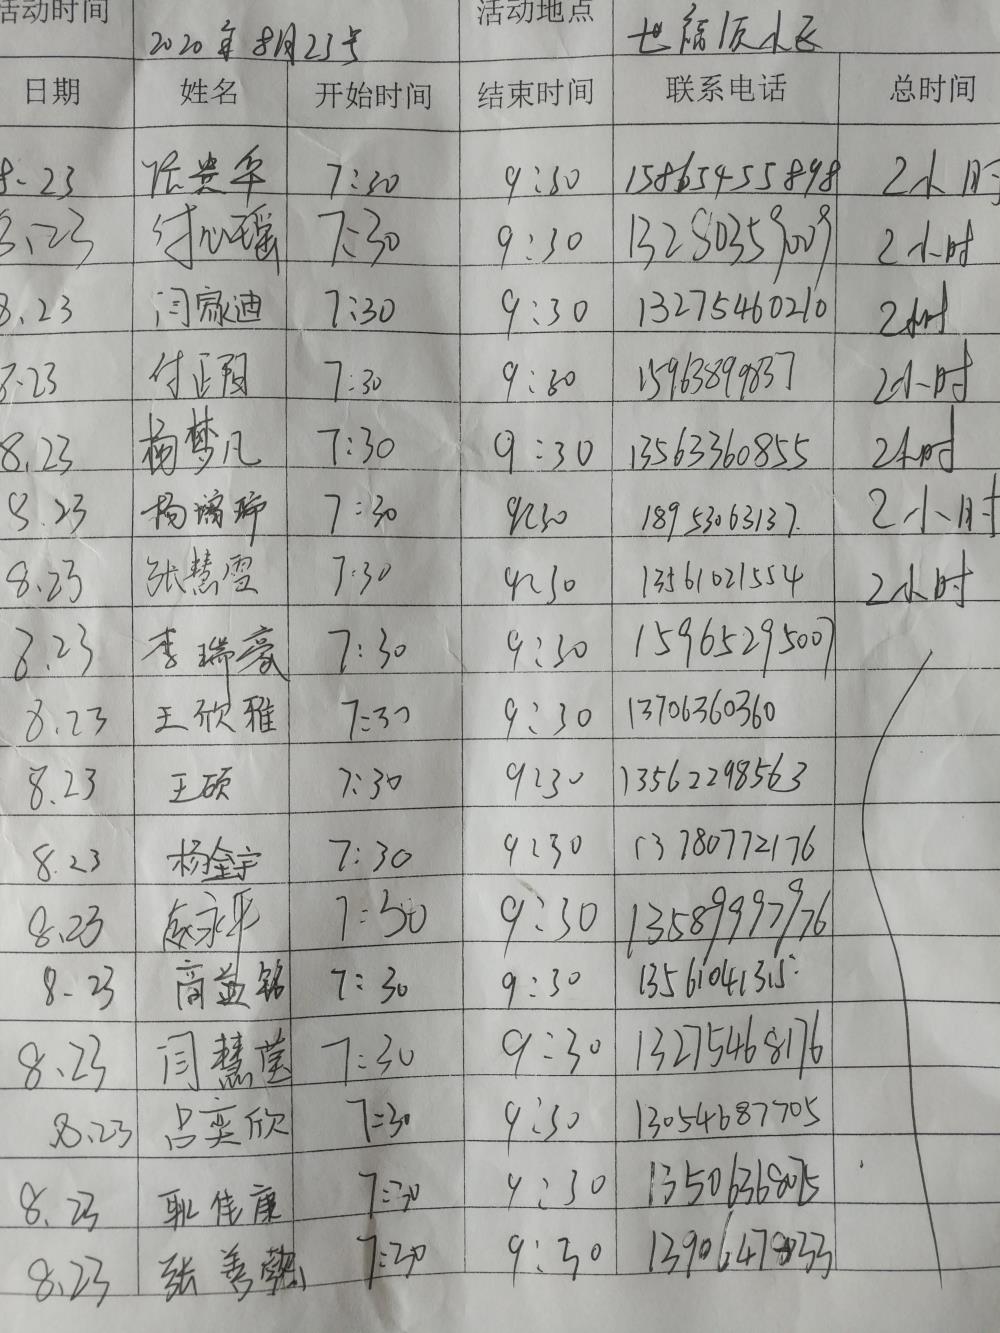 活动时间 2020年8月23号 活动地点
日期 姓名 开始时间 结束时间 联系电话 总时间
8.23 陈岩华 7:30 9:30 15865455898 2小时
8.23 付心瑶 7:30 9:30 13280359009 2小时
8.23 闫家迪 7:30 9:30 13275460210 2小时
8.23 付正阳 7:30 9:30 15963899837 2小时
8.23 杨梦凡 7:30 9:30 13563360855 2小时
8.23 杨 7:30 9:30 18953063137 2小时
8.23 张慧雪 7:30 9:30 13561021554 2小时
8.23 李瑞豪 7:30 9:30 15965295007
8.23 王欣雅 7:30 9:30 13706360360
8.23 王硕 7:30 9:30 13562298563
8.23 杨金宇 7:30 9:30 13780772176
8.23 永平 7:30 9:30 13589997976
8.23 商益铭 7:30 9:30 13561041315
8.23 闫慧莹 7:30 9:30 13275468176
8.23 吕奕欣 7:30 9:30 13054687705
8.23 耿佳康 7:30 9:30 13506368075
8.23 张善 7:30 9:30 13906478033